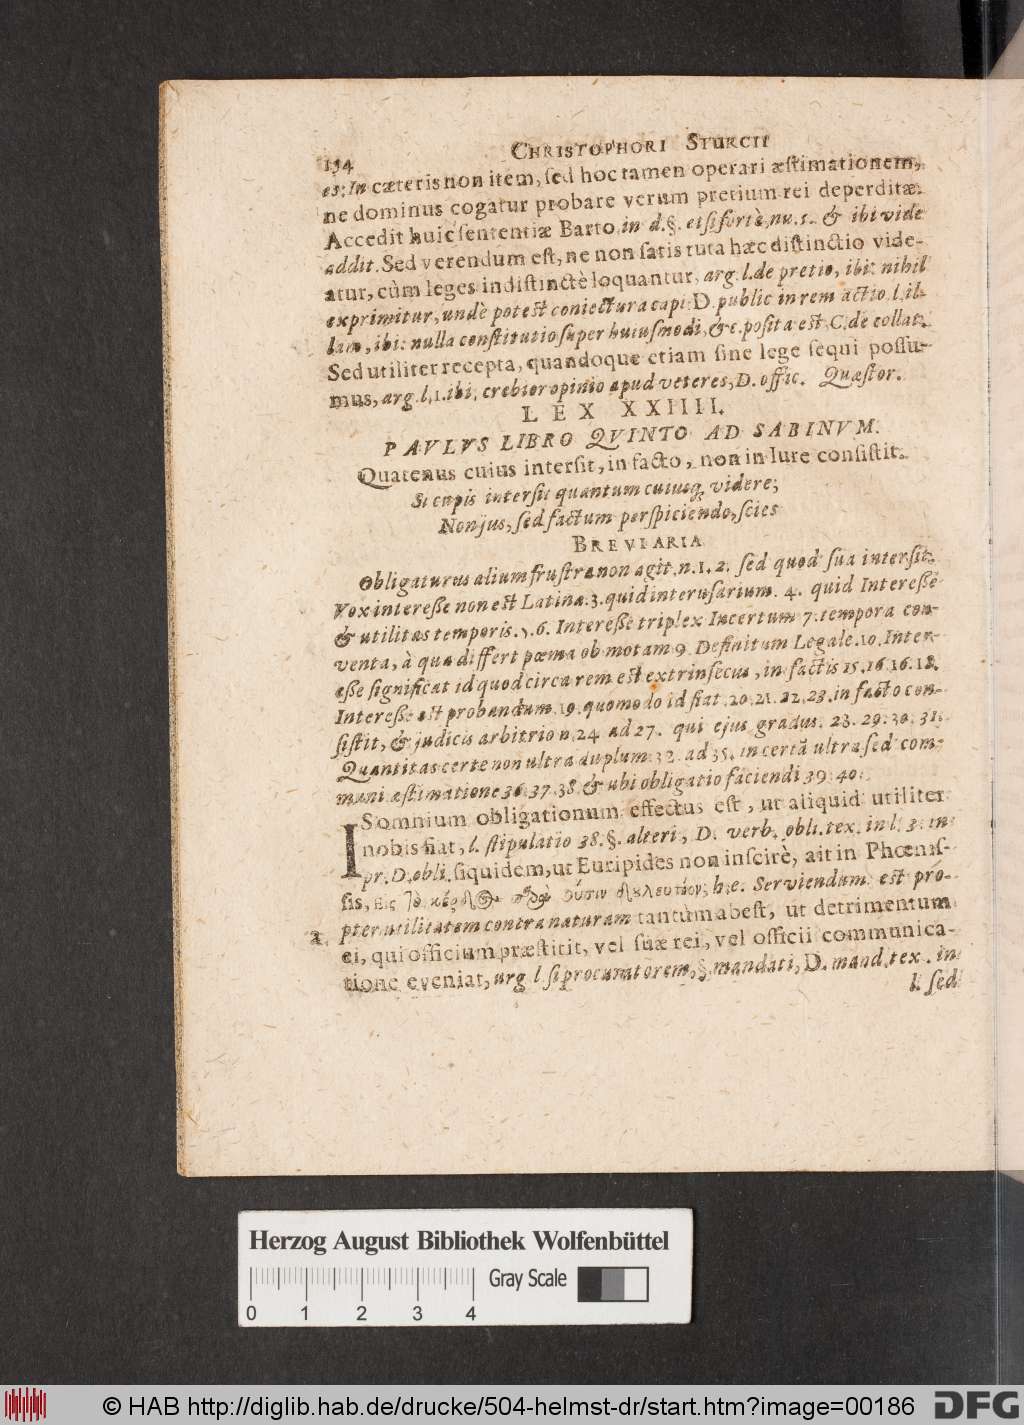 134 CHRISTOPHORI STURCII
es: In cæteris non item, sed hoc tamen operari æstimationem,
ne dominus cogatur probare verum pretium rei deperditæ.
Accedit huic sententiæ Barto. in d. §. etsi fortè, nu. 1. & ibi vide
addit. Sed verendum est, ne non satis tuta hæc distinctio vide-
atur, cùm leges indistinctè loquantur, arg. l. de pretio, ibi: nihil
exprimitur, unde potest coniectura capi: D. public in rem actio. l. il-
lam, ibi: nulla constitutio super huiusmodi, &c. posita est, C. de collat.
Sed utiliter recepta, quandoque etiam sine lege sequi possu-
mus, arg. l. 1. ibi, crebior opinio apud veteres, D. offic. Quæstor.
LEX XXIIII.
PAVLVS LIBRO QVINTO AD SABINVM.
Quatenus cuius intersit, in facto, non in Iure consistit.
Si cupis intersit quantum cuiusq; videre;
Non jus, sed factum perspiciendo, scies
BREVIARIA
Obligaturus alium frustra non agit. n. 1. 2. sed quod sua intersit.
Vox interesse non est Latina. 3. quid interusurium. 4. quid Interesse
& utilitas temporis. 5. 6. Interesse triplex Incertum 7. tempora con-
venta, à qua differt pœma ob motam 9. Definitum Legale. 10. Inter-
esse significat id quod circa rem est extrinsecus, in factis 15. 16. 16. 18.
Interesse est probandum. 19. quomodo id fiat. 20. 21. 22. 23. in facto con-
sistit, & judicis arbitrio n. 24 ad 27. qui ejus gradus. 28. 29. 30. 31.
Quantitas certe non ultra duplum. 32. ad 35. incertâ ultra sed com-
muni æstimatione 36. 37. 38. & ubi obligatio faciendi 39. 40.
IS omnium obligationum effectus est, ut aliquid utiliter
nobis fiat, l. stipulatio 38. §. alteri, D. verb. obli. tex. in l. 3. in
pr. D. obli. siquidem, ut Euripides non inscirè, ait in Phœnis-
sis, h. e. Serviendum est pro-
pter utilitatem contra naturam tantùm abest, ut detrimentum
2. ei, qui officium præstitit, vel suæ rei, vel officii communica-
tione eveniat, urg l si procuratorem, §. mandati, D. mand. tex. in
l. sed
Herzog August Bibliothek Wolfenbüttel
Gray Scale
0 1 2 3 4
© HAB http://diglib.hab.de/drucke/504-helmst-dr/start.htm?image=00186
DFG